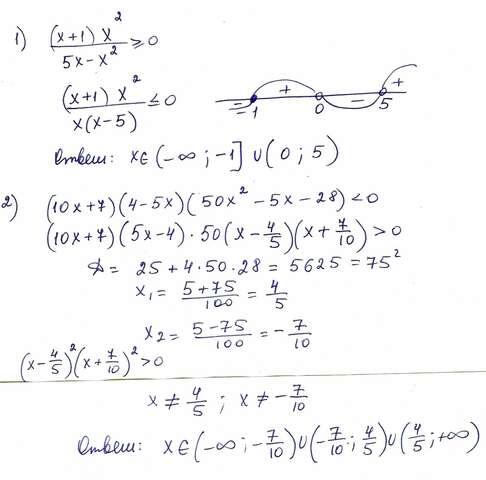 1) (x+1) x² / 5x - x² ≥ 0
(x+1) x² / x(x-5) ≤ 0
- + - +
-1 0 5
Ответ: x∈(-∞; -1] ∪ (0; 5)
2) (10x+7)(4-5x)(50x² - 5x - 28) < 0
(10x+7)(5x-4)·50(x - 4/5)(x + 7/10) > 0
D = 25 + 4·50·28 = 5625 = 75²
x₁ = 5+75 / 100 = 4/5
x₂ = 5-75 / 100 = -7/10
(x - 4/5)²(x + 7/10)² > 0
x ≠ 4/5 ; x ≠ -7/10
Ответ: x∈(-∞; -7/10) ∪ (-7/10; 4/5) ∪ (4/5; +∞)